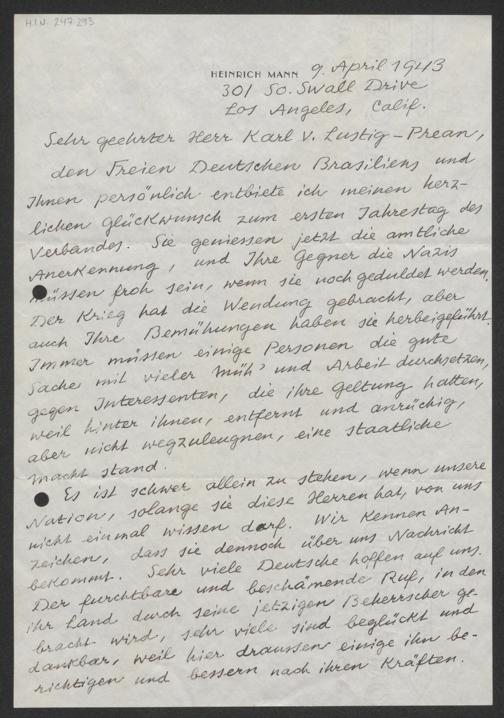 H.I.N. 247.293
HEINRICH MANN 9. April 1943
301 So. Swall Drive
Los Angeles, Calif.
Sehr geehrter Herr Karl v. Lustig-Prean,
den Freien Deutschen Brasiliens und
Ihnen persönlich entbiete ich meinen herz-
lichen Glückwunsch zum ersten Jahrestag des
Verbandes. Sie geniessen jetzt die amtliche
Anerkennung, und Ihre Gegner die Nazis
müssen froh sein, wenn sie noch geduldet werden.
Der Krieg hat die Wendung gebracht, aber
auch Ihre Bemühungen haben sie herbeigeführt.
Immer müssen einige Personen die gute
Sache mit vieler Müh' und Arbeit durchsetzen,
gegen Interessenten, die ihre Geltung hatten,
weil hinter ihnen, entfernt und anrüchig,
aber nicht wegzuleugnen, eine staatliche
Macht stand.
Es ist schwer allein zu stehen, wenn unsere
Nation, solange sie diese Herren hat, von uns
nicht einmal wissen darf. Wir kennen An-
zeichen, dass sie dennoch über uns Nachricht
bekommt. Sehr viele Deutsche hoffen auf uns.
Der furchtbare und beschämende Ruf, in den
ihr Land durch seine jetzigen Beherrscher ge-
bracht wird, sehr viele sind beglückt und
dankbar, weil hier draussen einige ihn be-
richtigen und bessern nach ihren Kräften.